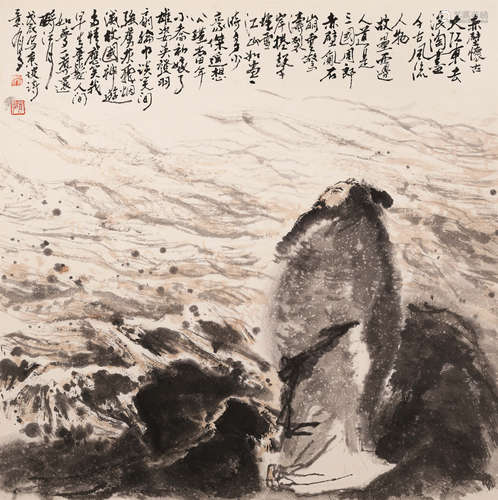 赤壁懷古
大江東去
浪淘盡
千古風流
人物
故壘西邊
人道是
三國周郎
赤壁亂石
崩雲驚
岸捲起千
堆雪
江山如畫一
時多少
豪傑遙想
公瑾當年
小喬初嫁了
雄姿英發羽
扇綸巾談笑間
強虜灰飛煙
滅故國神遊
多情應笑我
早生華髮人間
如夢一尊還
酹江月
寫東坡詩
意